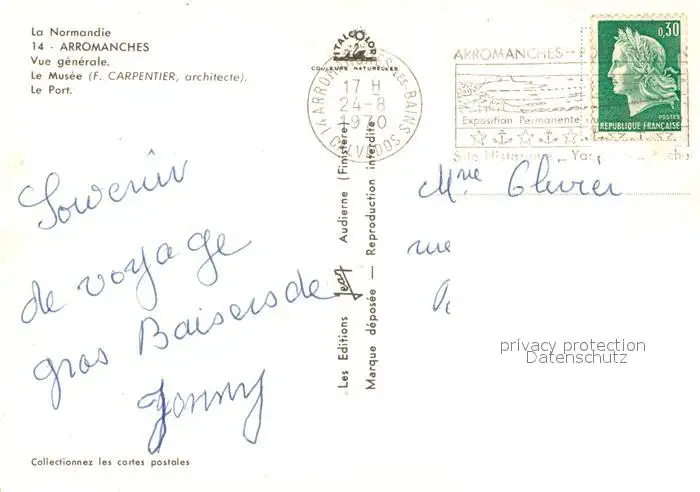 La Normandie
14 - ARROMANCHES
Vue générale.
Le Musée (F. CARPENTIER, architecte).
Le Port.
ITALCOLOR
COULEURS NATURELLES
14 ARROMANCHES LES BAINS
17 H
24-8
1970
CALVADOS
ARROMANCHES
Exposition Permanente
Site Historique
0,30
POSTES
REPUBLIQUE FRANÇAISE
Souvenir
de voyage
gros Baisers de
Jonny
Mme Olivier
rue
Les Editions Jean Audierne (Finistère)
Marque déposée — Reproduction interdite
privacy protection
Datenschutz
Collectionnez les cartes postales